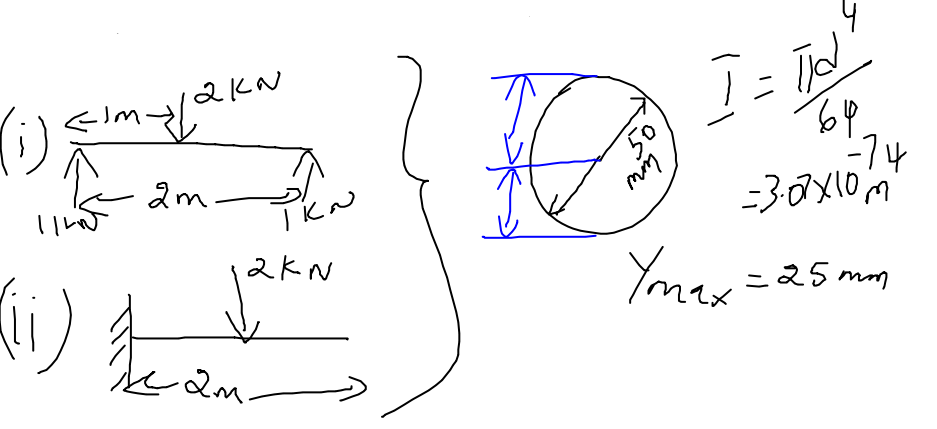 (i) 1m 2KN
2m
1KN 1KN
(ii) 2KN
2m
50 mm
I = πd⁴/64
= 3.07×10⁻⁷ m⁴
Ymax = 25 mm